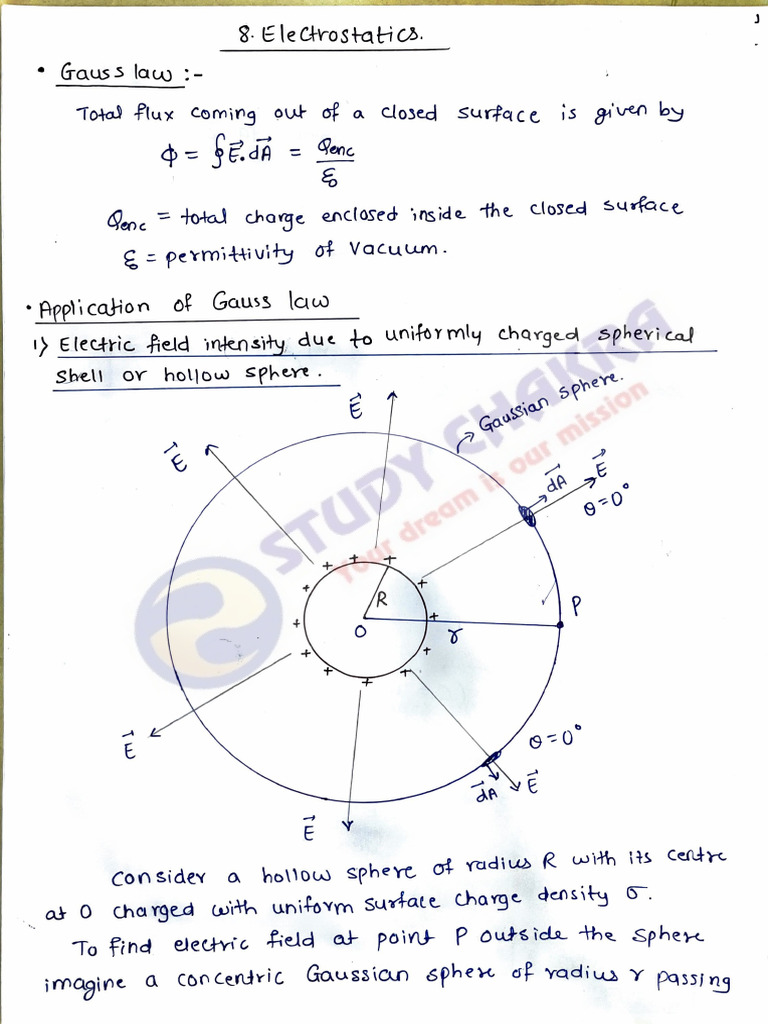 8. Electrostatics.
• Gauss law :-
Total flux coming out of a closed surface is given by
ϕ = ∮E⃗.dA⃗ = Qenc/ε0
Qenc = total charge enclosed inside the closed surface
ε0 = permittivity of vacuum.
• Application of Gauss law
1) Electric field intensity due to uniformly charged spherical
shell or hollow sphere.
STUDY CHAKRA
Your dream is our mission
E⃗
Gaussian sphere.
E⃗
dA⃗ E⃗
θ=0°
+ + + + + + + + + + + + +
R
P
O
r
θ=0°
E⃗
dA⃗ E⃗
E⃗
Consider a hollow sphere of radius R with its centre
at O charged with uniform surface charge density σ.
To find electric field at point P outside the sphere
imagine a concentric Gaussian sphere of radius r passing